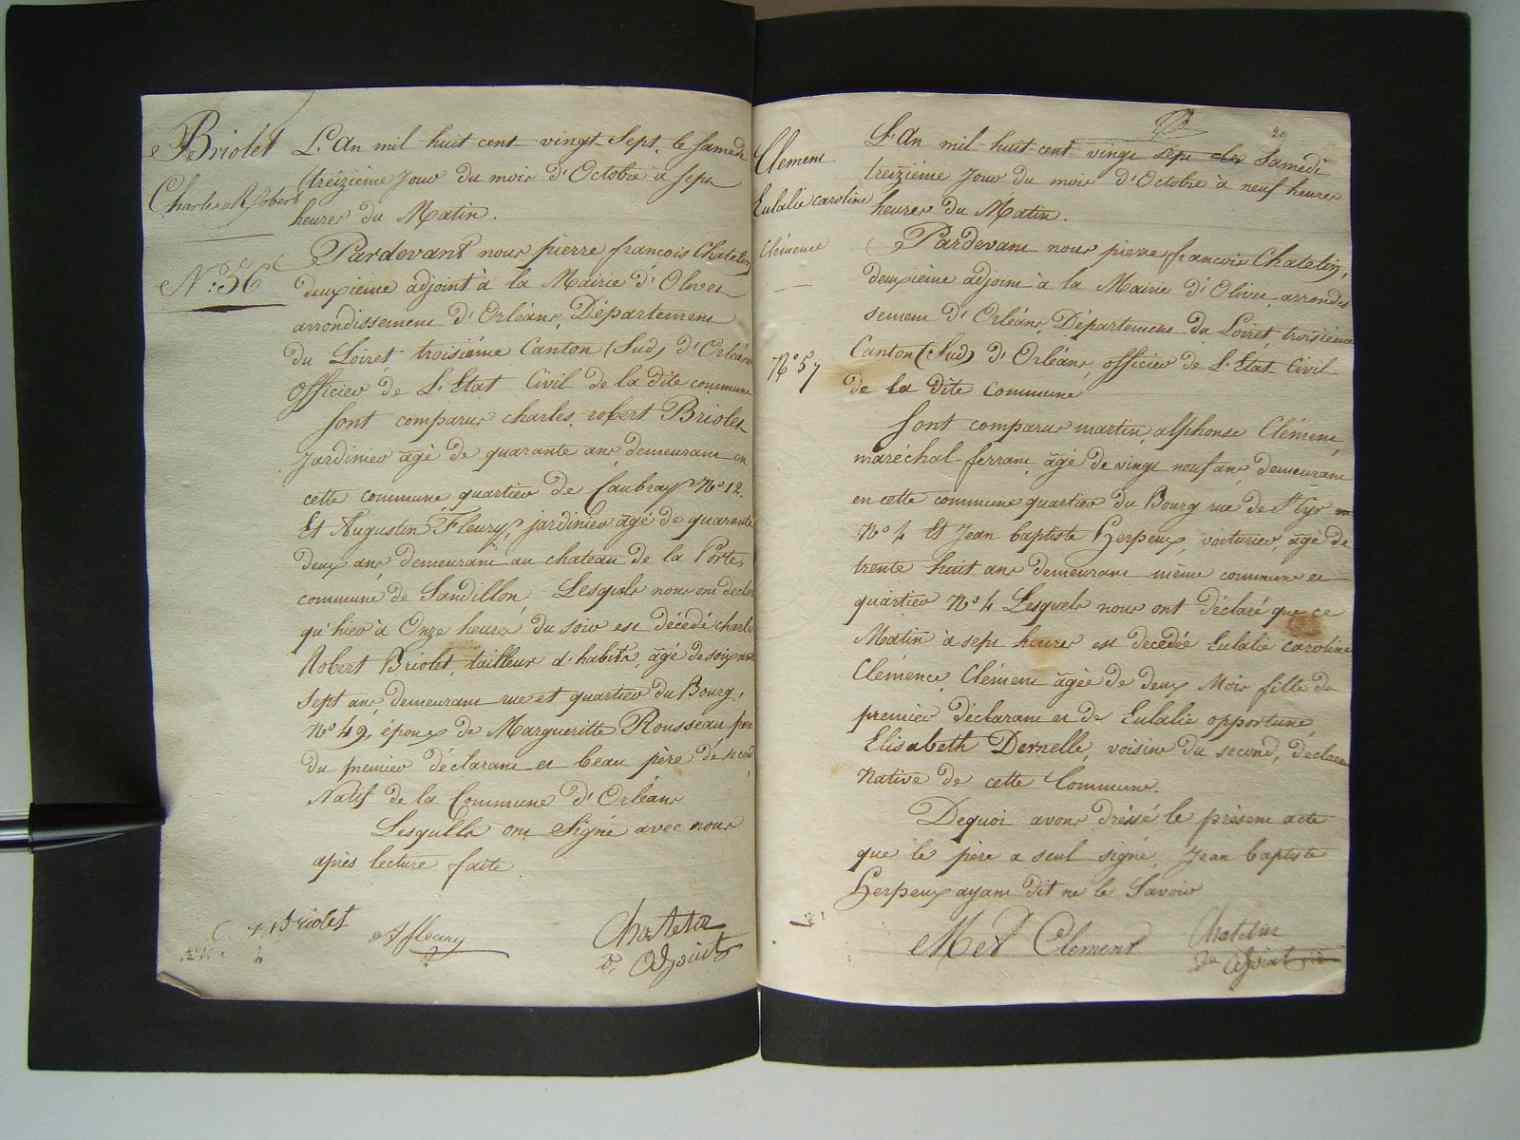 Briolet
Charles Robert
N.º 56
L'An mil huit cent vingt Sept, le Samedi
treizième Jour du mois d'Octobre à Sept
heures du Matin.
Pardevant nous pierre françois Chatelin
deuxieme adjoint à la Mairie d'Olivet
arrondissement d'Orléans, Département
du Loiret troisième Canton (Sud) d'Orléans
officier de L'Etat Civil de la dite commune
Sont comparus charles robert Briolet
Jardinier âgé de quarante ans demeurant en
cette commune quartier de Caubray Nº 12.
Et Augustin Fleury, jardinier âgé de quarante
deux ans demeurant au chateau de la Porte,
commune de Sandillon Lesquels nous ont déclaré
qu'hier à Onze heures du soir est décédé charles
Robert Briolet, tailleur d'habits, âgé de soixante
sept ans, demeurant rue et quartier du Bourg,
Nº 49, époux de Margueritte Rousseau père
du premier déclarant et beau père de second
Natif de la Commune d'Orléans
Lesquells ont Signé avec nous
après lecture faite
Briolet
A fleury
Chatelin
Adjoint
20
Clement
Eulalie caroline
Clémence
Nº 57
L'An mil huit cent vingt sept les Samedi
treizième Jour du mois d'Octobre à neuf heures
heures du Matin.
Pardevant nous pierre françois Chatelin,
deuxième adjoint à la Mairie d'Olivet, arrondis
sement d'Orléans, Département du Loiret, troisième
Canton (Sud) d'Orléans, officier de L'Etat Civil
de la dite Commune
Sont comparus martin alphonse Clément
maréchal ferrant, âgé de vingt neuf ans, demeurant
en cette commune quartier du Bourg rue de St Cyr
Nº 4 Et Jean baptiste Herpeux, voiturier, âgé de
trente huit ans demeurant même commune et
quartier Nº 4 Lesquels nous ont déclaré que ce
Matin à sept heures est décédée Eulalie caroline
Clémence, Clément âgée de deux Mois fille du
premier déclarant et de Eulalie opportune
Elisabeth Dernelle, voisine du second, déclarant
Native de cette Commune.
Dequoi avons dréssé le présent acte
que le père a seul signé, Jean baptiste
Herpeux ayant dit ne le Savoir
Clement
Chatelin
Adjoint